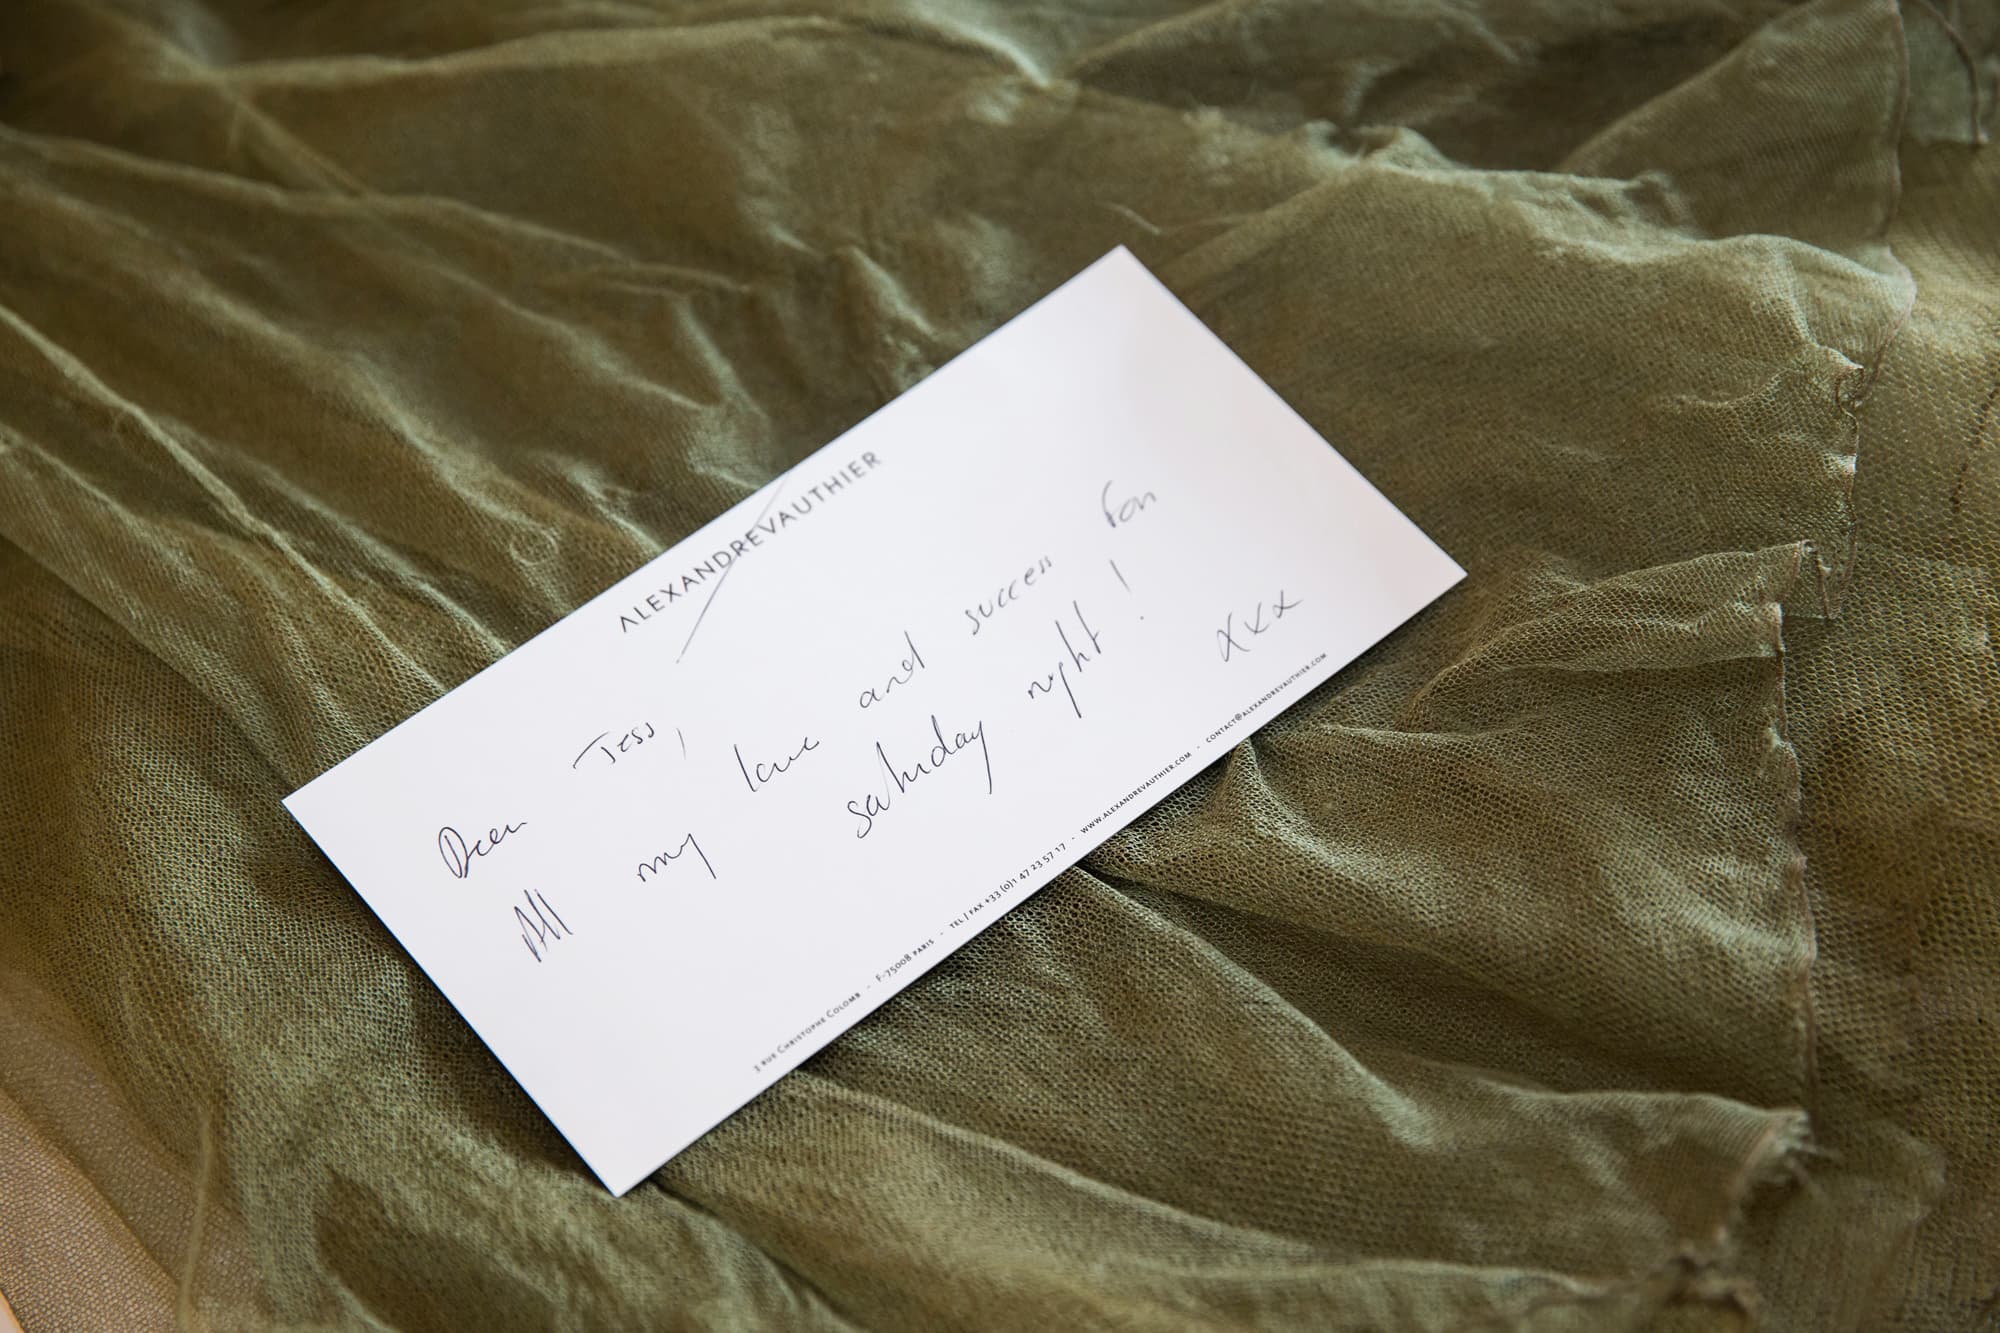 ALEXANDREVAUTHIER
Dear Jess,
All my love and success for
saturday night!
xxx
3 RUE CHRISTOPHE COLOMB - F-75008 PARIS - TEL / FAX +33 (0)1 47 23 57 17 - WWW.ALEXANDREVAUTHIER.COM - CONTACT@ALEXANDREVAUTHIER.COM